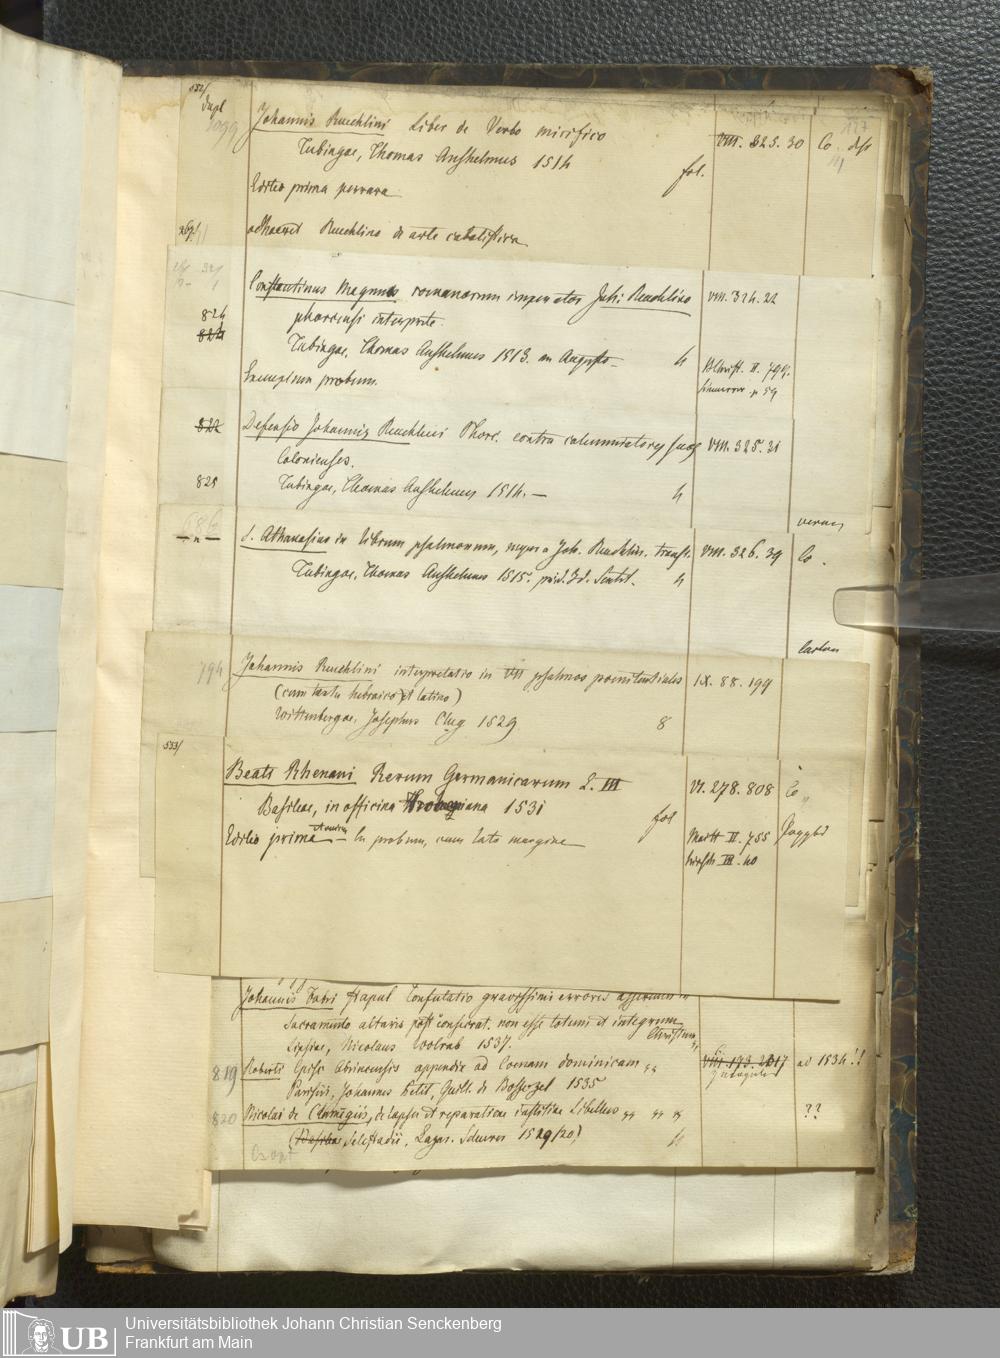 532/
dupl
Johannis Reuchlini Liber de Verbo mirifico VIII. 325. 30 Co
Tubingae, Thomas Anshelmus 1514 fol.
Editio prima perrara
adhaeret Reuchlino de arte cabalistica
Constantinus Magnus romanorum imperator Joh: Reuchlino VIII. 324. 22
824 phorcensi interprete.
Tubingae, Thomas Anshelmus 1513. m Augusto 4
Exemplum probum. II. 799.
p 59
822 Defensio Johannis Reuchlini Phorc. contra calumniatores suos VIII. 325. 31
Colonienses.
825 Tubingae, Thomas Anshelmus 1514. — 4
S. Athanasius in librum psalmorum, nuper a Joh. Reuchlin. transl. VIII. 326. 39 Co.
Tubingae, Thomas Anshelmus 1515. 4
794 Johannis Reuchlini interpretatio in VII psalmos poenitentiales IX. 88. 199
(cum textu hebraico et latino)
Wittenbergae, Josephus Clug 1529 8
533/
Beati Rhenani Rerum Germanicarum L. III VI. 278. 808 Co
Basileae, in officina Frobeniana 1531 fol
Editio prima probum, cum lato margine Maitt II. 755
III. 40
Johannis Fabri Confutatio gravissimi erroris
Sacramento altaris post consecrat. non esse totum et integrum
Christum
Lipsiae, Nicolaus Wolrab 1537.
819 Roberti Episc Abrincensis appendix ad Coenam dominicam ad 1534!!
Parisiis, Johannes Petit, Guill. de Bossozel 1535
820 Nicolai de Clamengiis, de lapsu et reparatione iustitiae Libellus ??
Selestadii, Lazar. Schurer 1519/20) 4
Universitätsbibliothek Johann Christian Senckenberg
Frankfurt am Main
UB